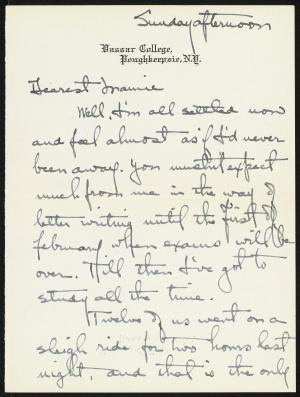 Sunday afternoon
Vassar College,
Poughkeepsie, N.Y.
Dearest Mamie
Well, I'm all settled now
and feel almost as if I'd never
been away. You mustn't expect
much from me in the way of
letter writing until the first of
february when exams will be
over. Till then I've got to
study all the time.
Twelve of us went on a
sleigh ride for two hours last
night, and that is the only